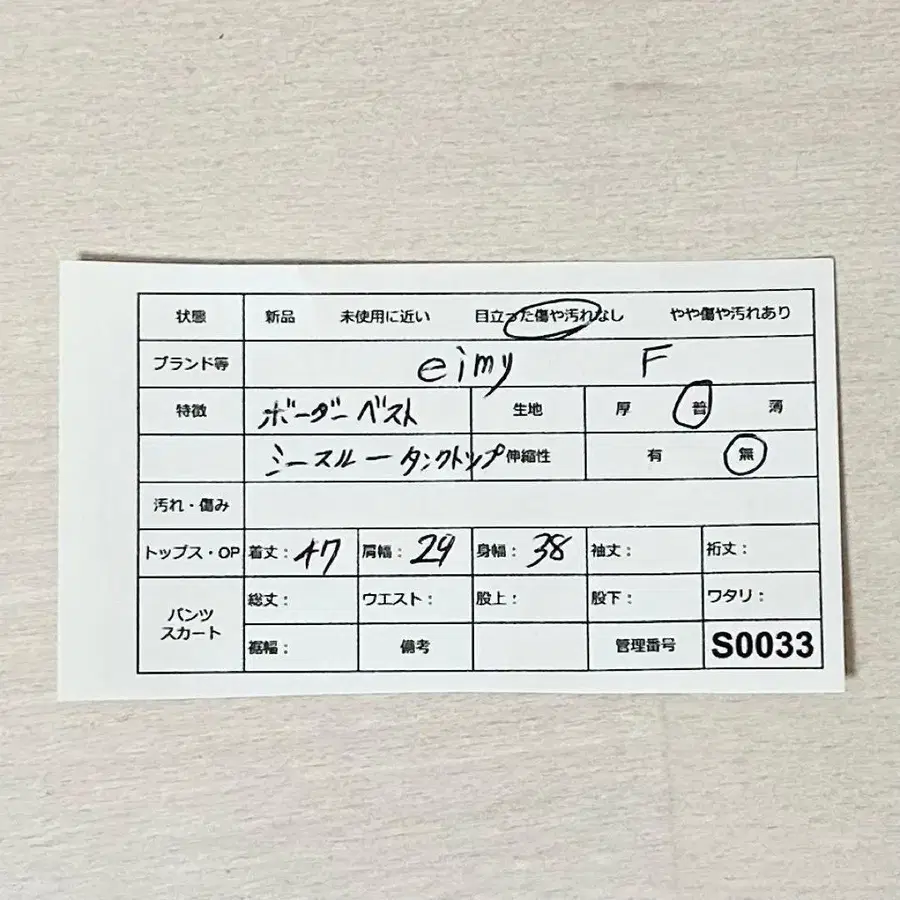 状態 新品 未使用に近い 目立った傷や汚れなし やや傷や汚れあり
ブランド等 eimy F
特徴 ボーダーベスト 生地 厚 普 薄
シースルータンクトップ 伸縮性 有 無
汚れ・傷み
トップス・OP 着丈: 47 肩幅: 29 身幅: 38 袖丈: 裄丈:
パンツ スカート 総丈: ウエスト: 股上: 股下: ワタリ:
裾幅: 備考 管理番号 S0033